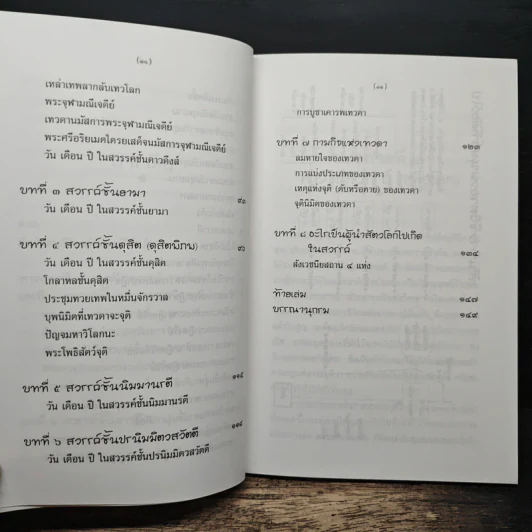 (๑๐)
เหล่าเทพลากลับเทวโลก
พระจุฬามณีเจดีย์
เทวดานมัสการพระจุฬามณีเจดีย์
พระศรีอริยเมตไตรยเสด็จนมัสการจุฬามณีเจดีย์
วัน เดือน ปี ในสวรรค์ชั้นดาวดึงส์
บทที่ ๓ สวรรค์ชั้นยามา
วัน เดือน ปี ในสวรรค์ชั้นยามา
บทที่ ๔ สวรรค์ชั้นดุสิต (ดุสิตพิภพ)
วัน เดือน ปี ในสวรรค์ชั้นดุสิต
โกลาหลชั้นดุสิต
ประชุมทวยเทพในหมื่นจักรวาล
บุพนิมิตที่เทวดาจะจุติ
ปัญจมหาวิโลกนะ
พระโพธิสัตว์จุติ
บทที่ ๕ สวรรค์ชั้นนิมมานรดี
วัน เดือน ปี ในสวรรค์ชั้นนิมมานรดี
บทที่ ๖ สวรรค์ชั้นปรนิมมิตวสวัตดี
วัน เดือน ปี ในสวรรค์ชั้นปรนิมมิตวสวัตดี
(๑๑)
การบูชาเคารพเทวดา
บทที่ ๗ ภารกิจแห่งเทวดา ๑๒๓
ลมหายใจของเทวดา
การแบ่งประเภทของเทวดา
เหตุแห่งจุติ (ดับหรือตาย) ของเทวดา
จุตินิมิตของเทวดา
บทที่ ๘ อะไรเป็นผู้นำสัตว์โลกไปเกิด
ในสวรรค์ ๑๓๔
สังเวชนียสถาน ๔ แห่ง
ท้ายเล่ม ๑๔๗
บรรณานุกรม ๑๔๙